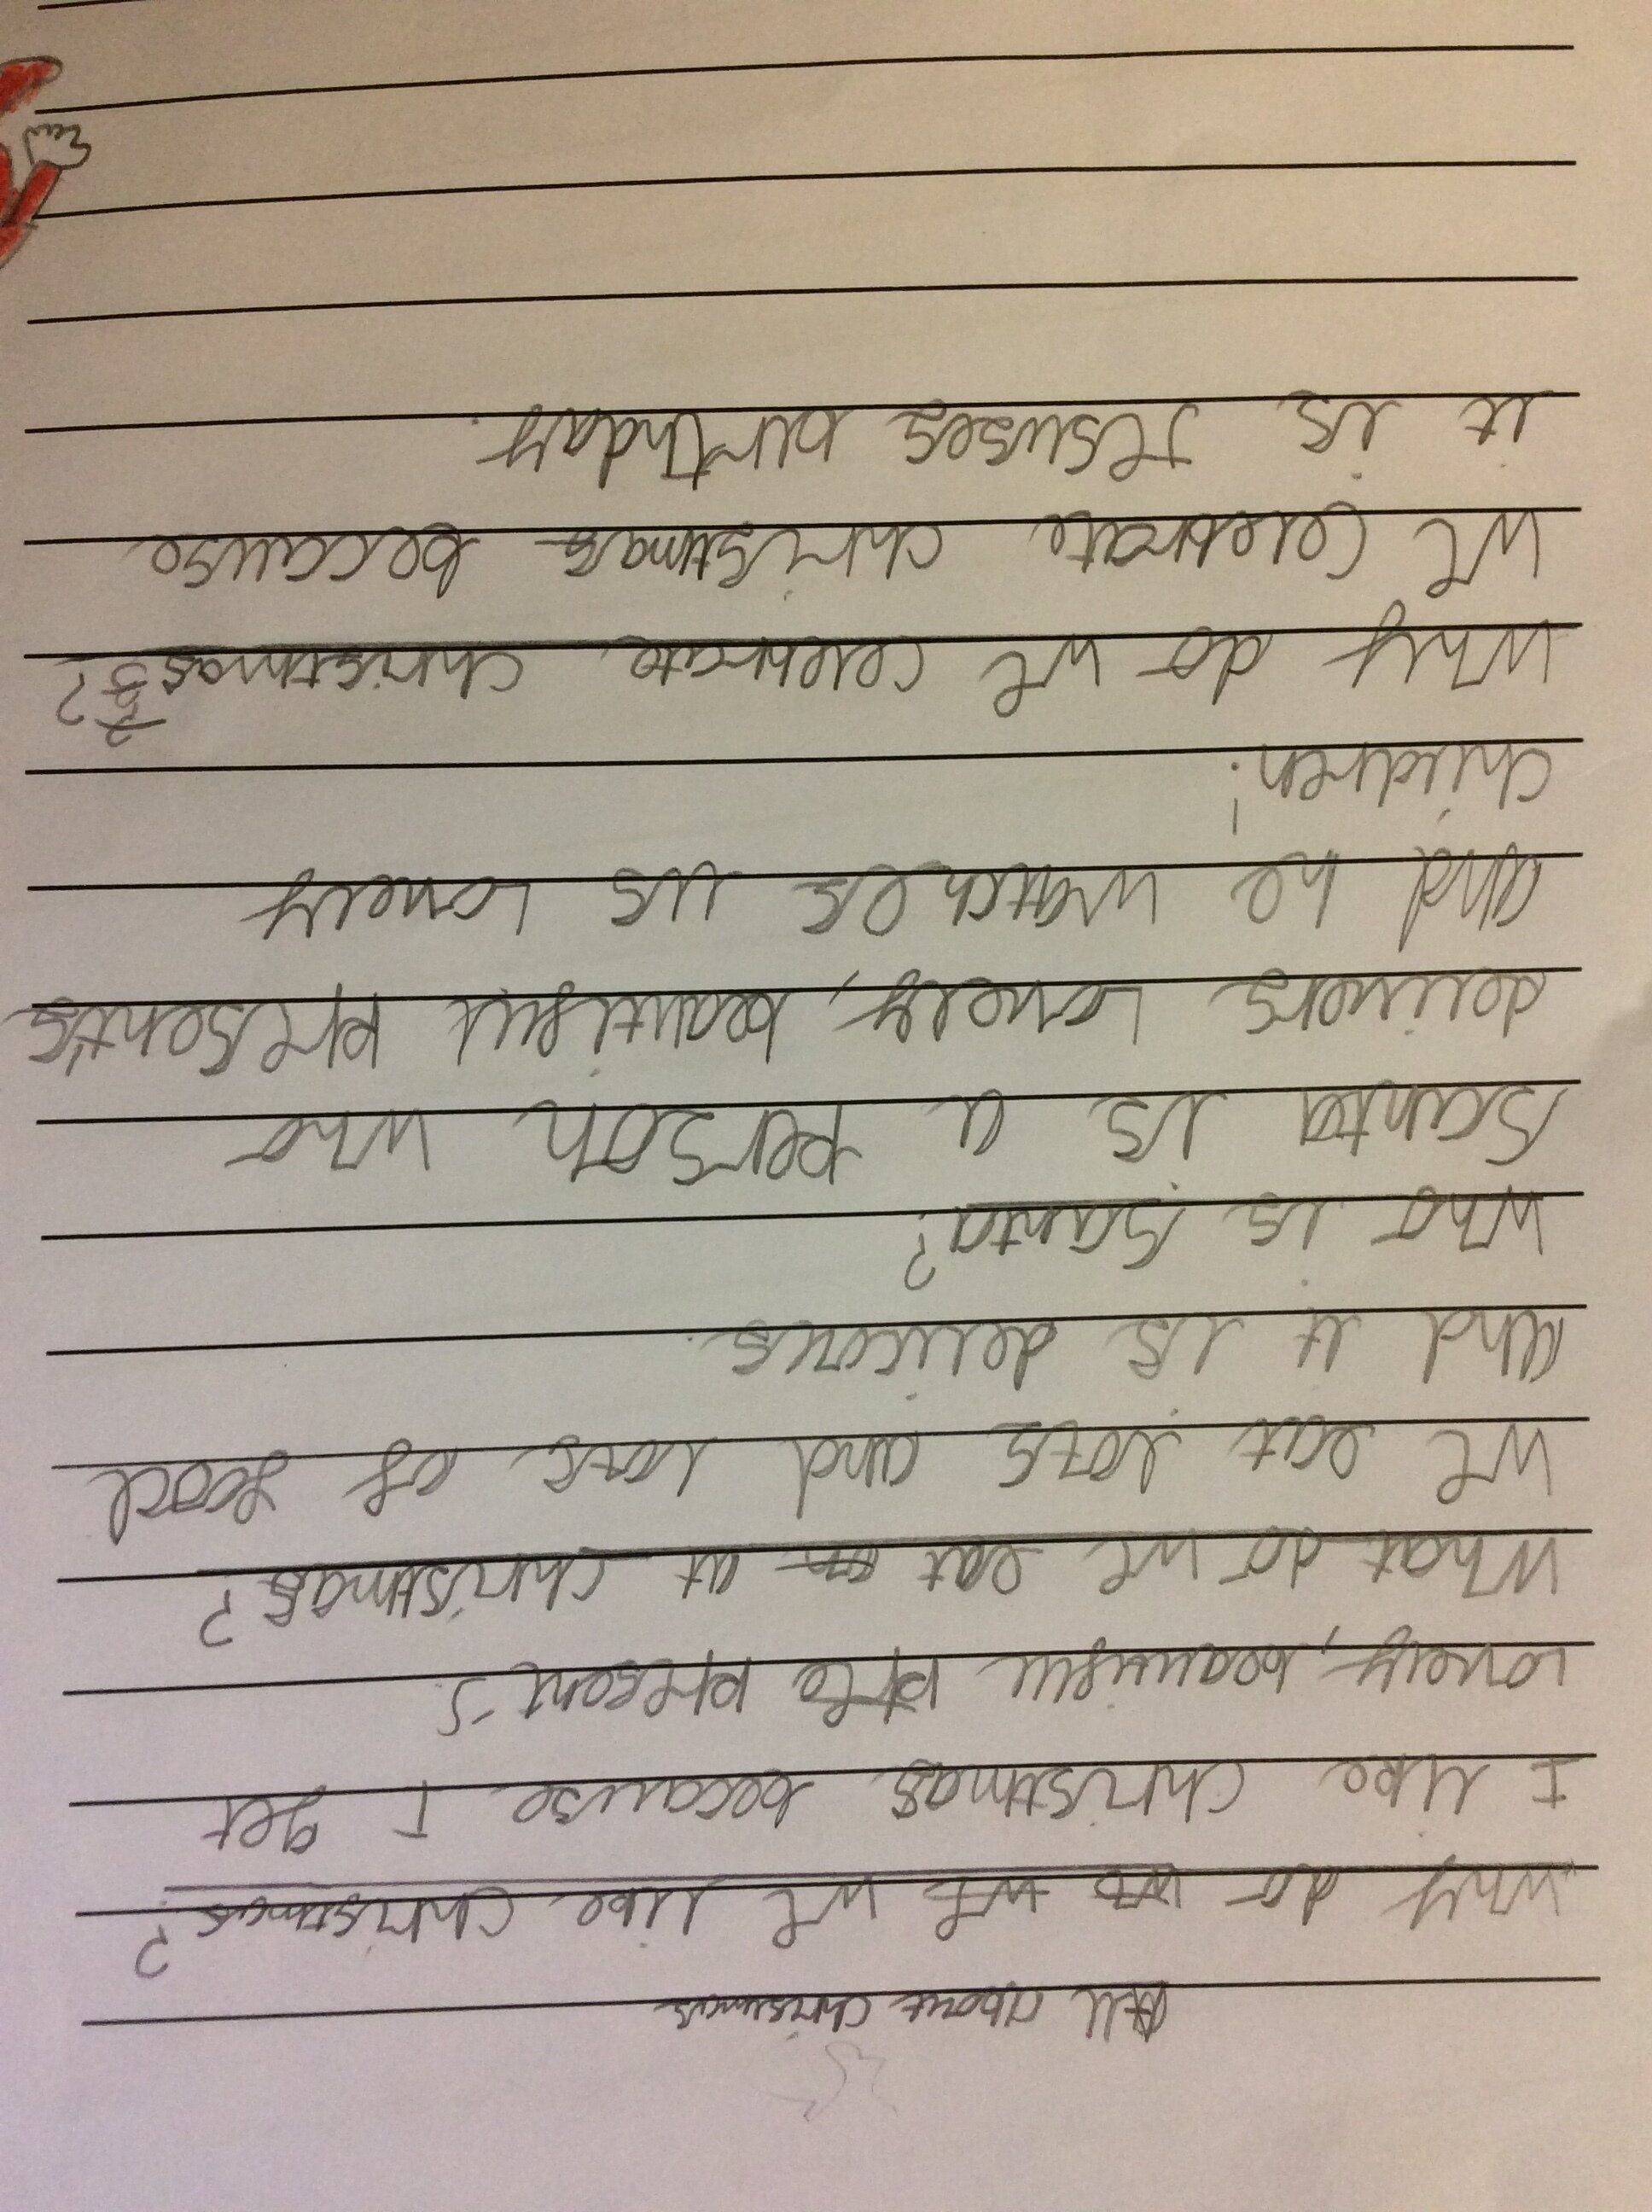 All about christmas
Why do we we we like Christmas?
I like Christmas because I get
Lovely, beautifull pre presents.
What do we eat on at Christmas?
We eat lots and lots of food
and it is delicous.
Who is Santa?
Santa is a person who
delivers Lovely, beautifull presents
and he watches us Lovely
children!
Why do we celebrate christmas?
We Celebrate christmas beccause
it is Jesuses birthday.